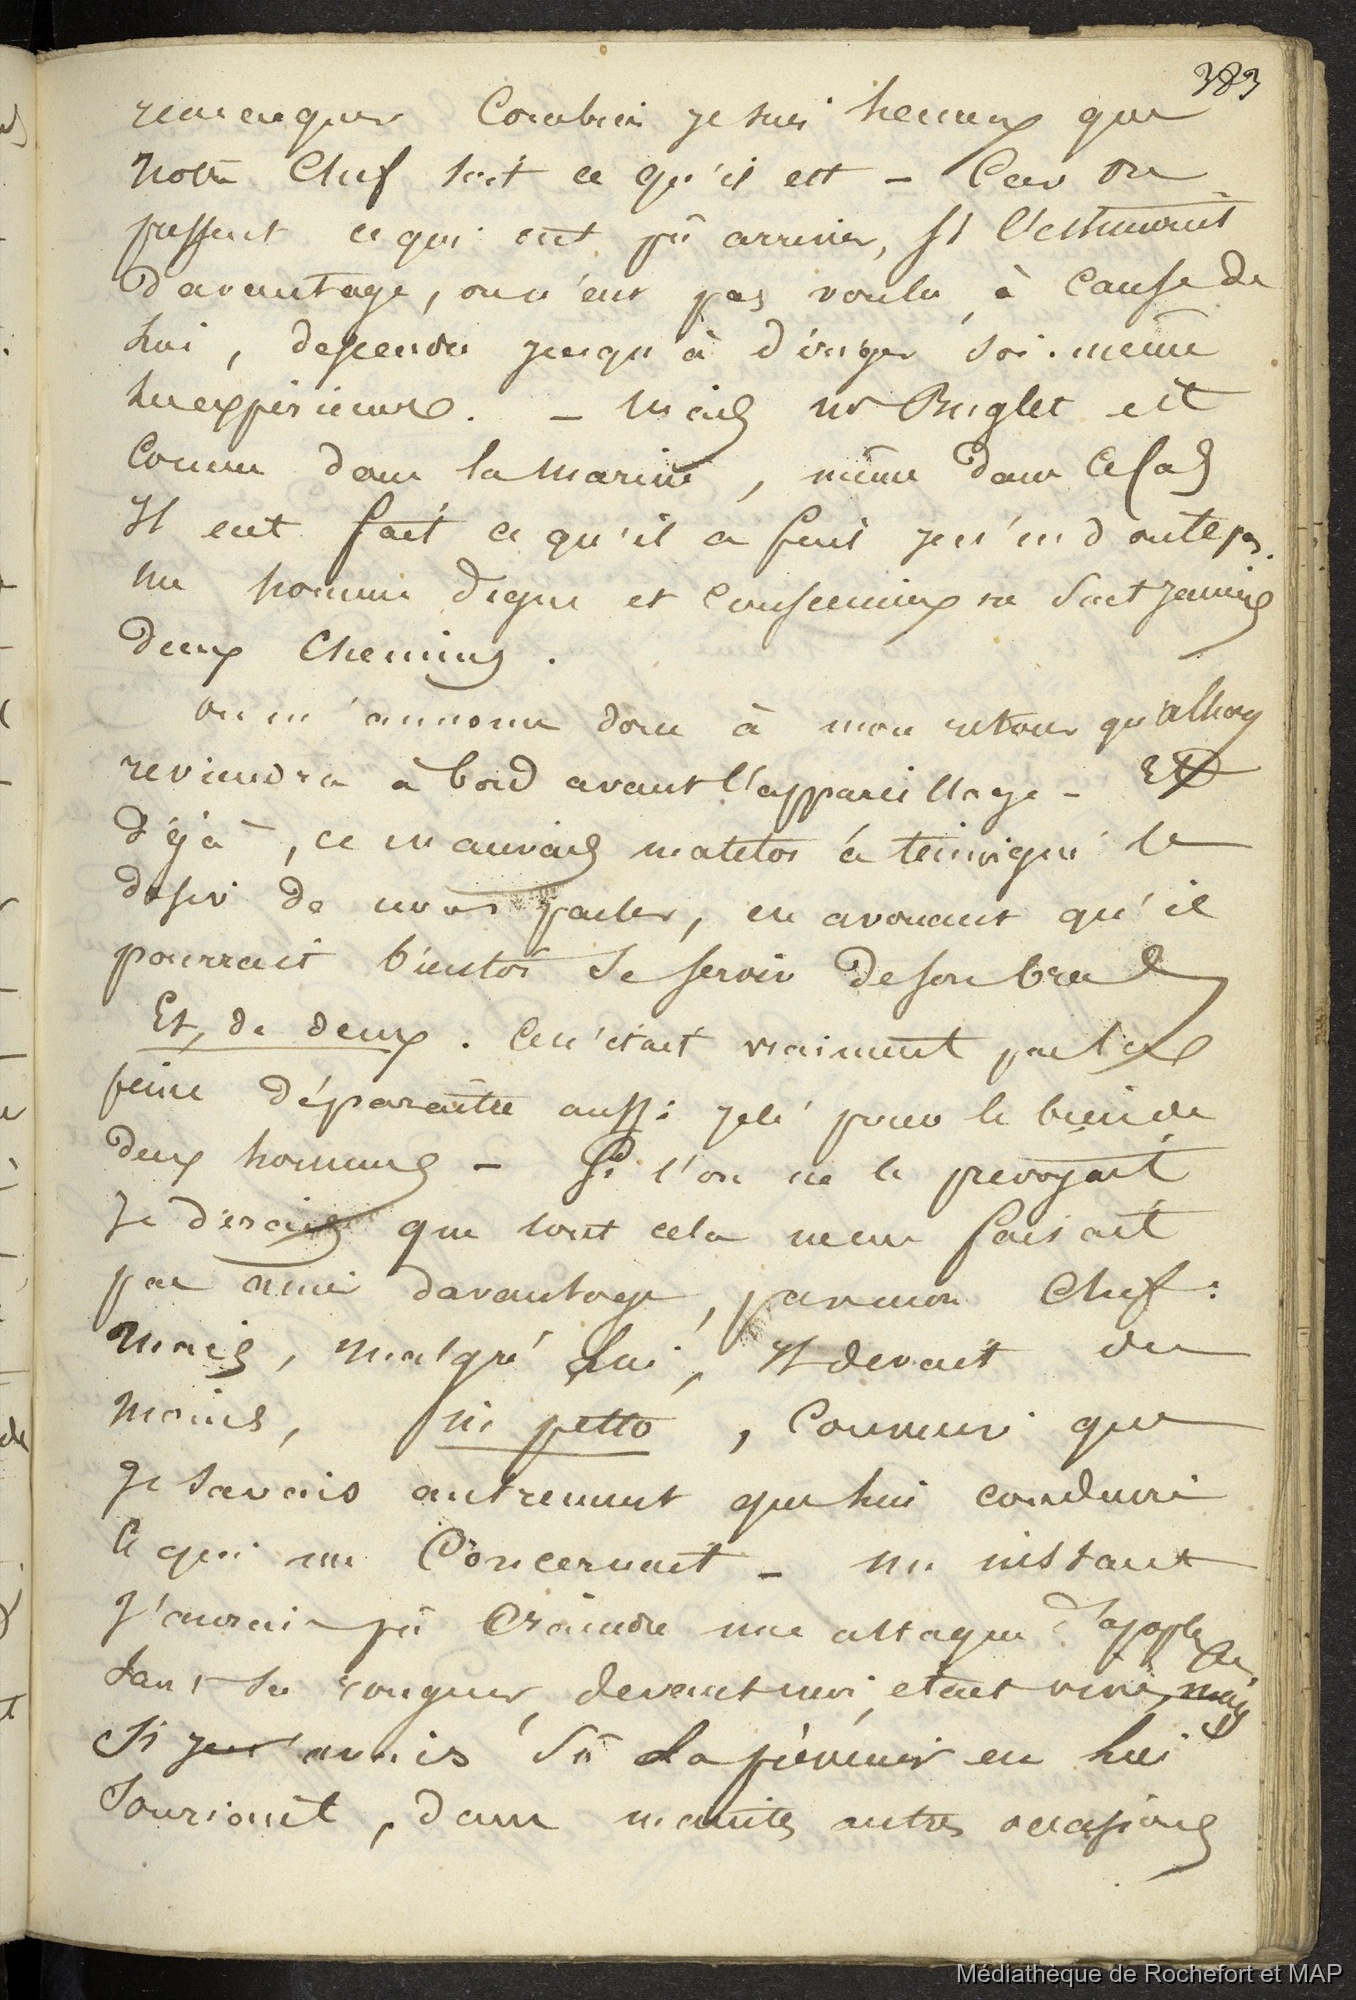 383
remarquer Combien je suis heureux que
notre Chef soit ce qu'il est - Car on
pressent ce qui eut pû arriver, si l'estimant
Davantage, on n'eut pas voulu, à Cause de
lui, descendre jusqu'à diriger soi-même
Mais mr Buglet est
Connu dans la Marine, même dans Ce Cas
Il eut fait ce qu'il a fait je n'en doute pas.
un homme digne et Consciencieux ne suit jamais
deux Chemins.
on m'annonce donc à mon retour qu'
reviendra à bord avant l'appareillage - Et
Déjà, ce mauvais matelot a témoigné le
desir de nous parler, en avouant qu'il
pourrait bientot se servir de son bras
Et, de deux. Ce n'était vraiment pas la
peine de paraitre aussi zelé pour le bien de
deux hommes - Si l'on ne le prevoyait
Je dirais que tout cela ne me faisait
pas aimer davantage, par mon Chef :
Mais, malgré lui, Il devait du
moins, in petto, Convenir que
je savais autrement que lui conduire
Ce qui me Concernait - un instant
J'aurais pû Craindre une attaque d'apoplexie
tant sa rougeur, devant moi, etait vive, mais
Si je n'avais sû la prévenir en lui
Souriant, dans maintes autres occasions
Médiathèque de Rochefort et MAP